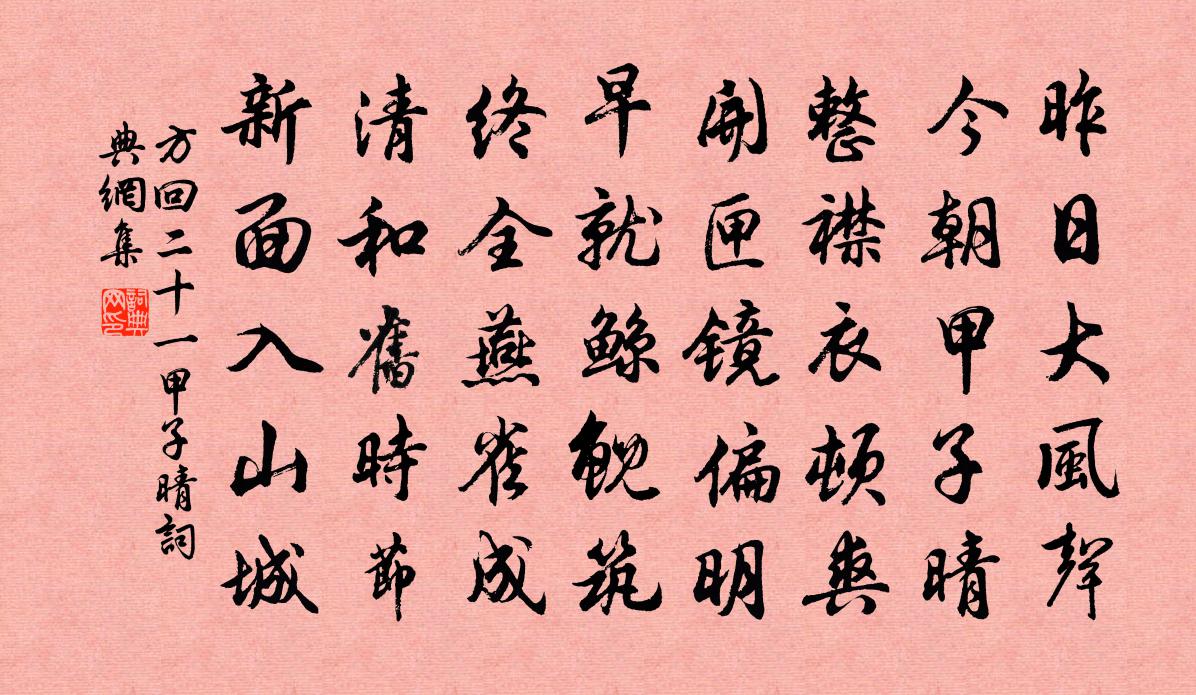 昨日大風聲
今朝甲子晴
整襟衣頓爽
開匣鏡偏明
早就鯨鯢筑
終全燕雀成
清和舊時節
新面入山城
方回二十一甲子晴詞
典網集
詞典网印